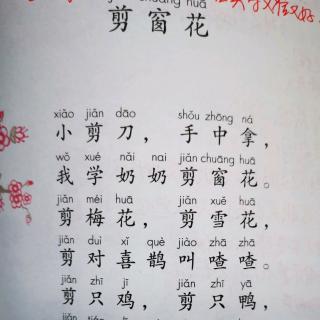 jiǎn chuāng huā
剪窗花
xiǎo jiǎn dāo shǒu zhōng ná
小剪刀，手中拿，
wǒ xué nǎi nai jiǎn chuāng huā
我学奶奶剪窗花。
jiǎn méi huā jiǎn xuě huā
剪梅花，剪雪花，
jiǎn duì xǐ què jiào zhā zhā
剪对喜鹊叫喳喳。
jiǎn zhī jī jiǎn zhī yā
剪只鸡，剪只鸭，